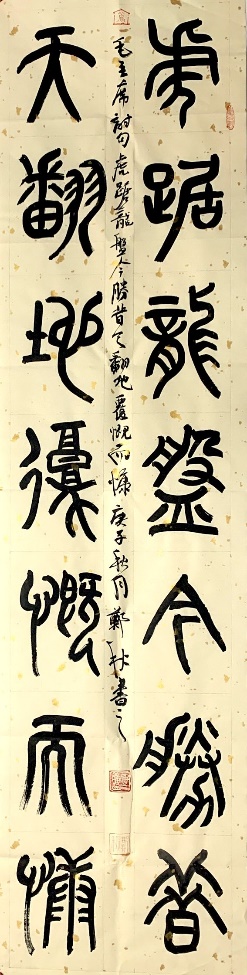 虎踞龍盤今勝昔
天翻地覆慨而慷
毛主席詩句虎踞龍盤今勝昔天翻地覆慨而慷庚子秋月鄭秋書之